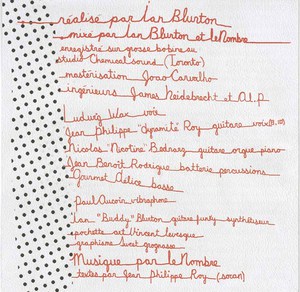 réalisé par Ian Blurton
mixé par Ian Blurton et le Nombre
enregistré sur grosse bobine au
studio Chemical sound (Toronto)
mastérisation Joao Carvalho
ingénieurs James Heidebrecht et D.L.P
Ludwig Wax voix
Jean Philippe "dynamite" Roy guitare voix
Nicolas "Nicotine" Bednarz guitare orgue piano
Jean Benoît Rodrigue batterie percussions
Gourmet Délice basse
Paul Aucoin vibraphone
Ian "Buddy" Blurton guitare funky synthétiseur
pochette art Vincent Lévesque
graphisme Surat grognasse
Musique par le Nombre
textes par Jean Philippe Roy (socan)